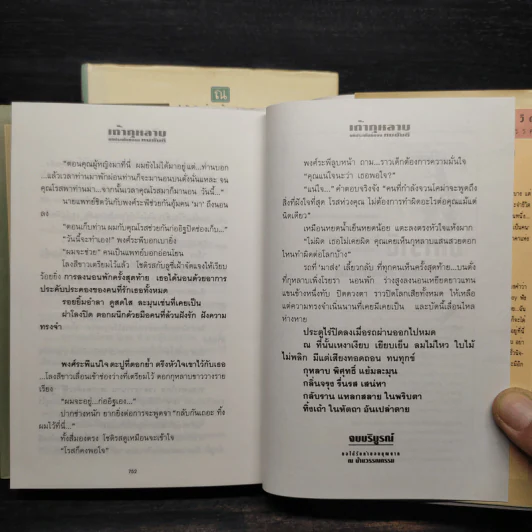 ณ
เก้ากุหลาบ
"ตอนคุณผู้หญิงมาที่นี่ ผมยังไม่ได้มาอยู่แต่...ท่านบอก
...แล้วเวลาท่านมาพักผ่อนท่านก็จะมานอนบนตั่งนั่นแหละ จน
คุณโรสพาท่านมา...จากนั้นเวลาคุณโรสมาก็มานอน วันนี้..."
นายแพทย์ชิดวันกับพงศ์ระพีช่วยกันอุ้มคน 'มา' ถึงนอน
ลง
"ตอนเก็บท่าน ผมกับคุณโรสช่วยกันก่ออิฐปิดช่องเก็บ..."
"วันนี้จะทำเอง!" พงศ์ระพีบอกเบายิ่ง
"ผมจะช่วย" คนเป็นแพทย์บอกอ่อนโยน
โลงสีขาวเตรียมไว้แล้ว โชติรสกับอุชีเผ้าจัดแจงให้เรียบ
ร้อยยิ่ง การลงนอนพักครั้งสุดท้าย เธอได้นอนด้วยอาการ
ประดับประคองของคนที่รักเธอทั้งหมด
รอยยิ้มอำลา ดูสดใส ละมุนเช่นที่เคยเป็น
ฝาโลงปิด ตอกผนึกด้วยมือคนที่ล้วนฝังรัก ฝังความ
ทรงจำ
พงศ์ระพีแน่ใจ ตะปูที่ตอกย้ำ ตรึงหัวใจเขาไว้กับเธอ
...โลงสีขาวเลื่อนเข้าช่องว่างที่เตรียมไว้ ดอกกุหลาบขาววางราย
เรียง
"ผมจะอยู่...ก่ออิฐเอง..."
ปากช่างหนัก ยากยิ่งต่อการจะพูดจา "กลับกันเถอะ ทิ้ง
ผมไว้ที่นี่..."
ทั้งสี่มองตรง โชติรสดูเหมือนจะเข้าใจ
"โรสก็คงพอใจ"
762
เก้ากุหลาบ
พงศ์ระพีลูบหน้า ถาม...ราวเด็กต้องการความมั่นใจ
"คุณแน่ใจนะว่า เธอพอใจ?"
"แน่ใจ..." คำตอบจริงจัง "คนที่กำลังจวนไคม่าจะพูดถึง
สิ่งที่ฝังใจที่สุด โรสห่วงคุณ ไม่ต้องการทำผิดอะไรต่อคุณแม้แต่
นิดเดียว"
เหมือนหยดน้ำเย็นหยดน้อย แตะลงตรงหัวใจแห้งผาก
"ไม่ผิด เธอไม่เคยผิด คุณเคยเห็นกุหลาบแสนสวยดอก
ไหนทำผิดต่อโลกบ้าง"
รถที่ 'มาส่ง' เลี้ยวกลับ ที่ทุกคนเห็นครั้งสุดท้าย...บนตั่ง
ที่กุหลาบเพิ่งโรยรา นอนพัก ร่างสูงลงนอนเหยียดยาวแทน
แขนข้างหนึ่งทับ ปิดดวงตา ราวปิดโลกเสียทั้งหมด ให้เหลือ
แต่ความทรงจำเนิ่นนานที่เคยมีเคยเป็น และบัดนี้เลื่อนไหล
ห่างหาย
ประตูไร่ปิดลงเมื่อรถผ่านออกไปหมด
ณ ที่นั้นเหงาเงียบ เยียบเย็น ลมไม่ไหว ใบไม้
ไม่พลิก มีแต่เสียงทอดถอน ทนทุกข์
กุหลาบ พิศุทธิ์ แย้มละมุน
กลิ่นจรุง รื่นรส เสน่หา
กลับราน แหลกสลาย ในพริบตา
ทิ้งเถ้า ในหัตถา อันเปล่าดาย
จบบริบูรณ์
ณ บ้านวรรณกรรม